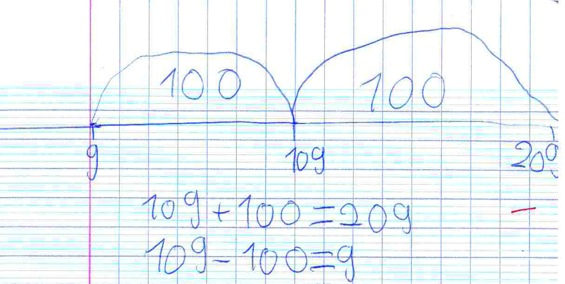 100 100
9 109 209
109+100=209
109-100=9